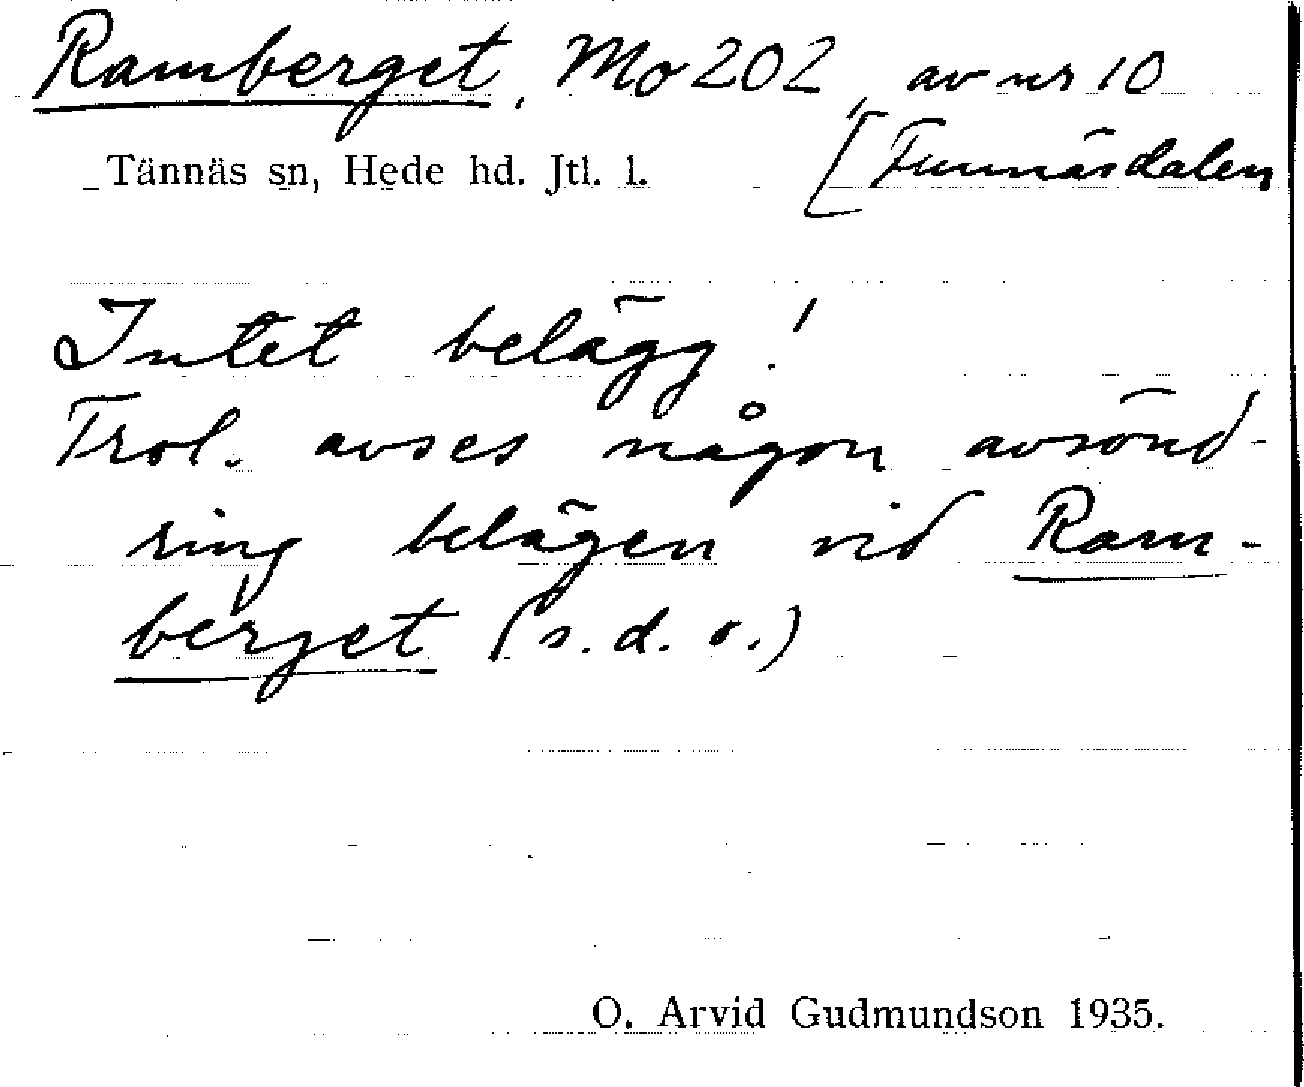 Ramberget, Mo 202, av nr 10
[Funnäsdalen
Tännäs sn, Hede hd. Jtl. l.
Intet belägg!
Trol. avses någon avsönd-
ring belägen vid Ram-
berget (s.d.o.)
O. Arvid Gudmundson 1935.